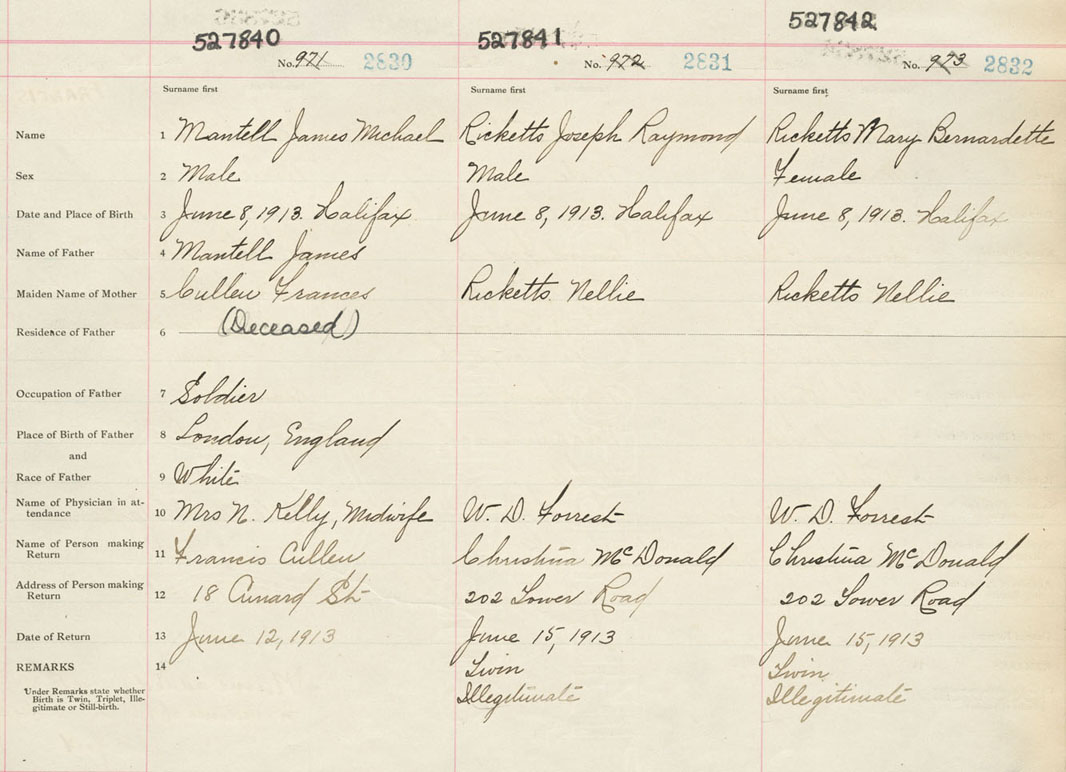 527840 527841 527842
No. 971 2830 No. 972 2831 No. 973 2832
Surname first Surname first Surname first
Name 1 Mantell James Michael Ricketts Joseph Raymond Ricketts Mary Bernardette
Sex 2 Male Male Female
Date and Place of Birth 3 June 8, 1913. Halifax June 8, 1913. Halifax June 8, 1913. Halifax
Name of Father 4 Mantell James
Maiden Name of Mother 5 Cullen Frances Ricketts Nellie Ricketts Nellie
Residence of Father 6 (Deceased)
Occupation of Father 7 Soldier
Place of Birth of Father 8 London, England
and
Race of Father 9 White
Name of Physician in at-
tendance 10 Mrs N. Kelly, Midwife W. D. Forrest W. D. Forrest
Name of Person making
Return 11 Francis Cullen Christina McDonald Christina McDonald
Address of Person making
Return 12 18 Cunard St 202 Tower Road 202 Tower Road
Date of Return 13 June 12, 1913 June 15, 1913 June 15, 1913
REMARKS 14 Twin Twin
Under Remarks state whether
Birth is Twin, Triplet, Ille-
gitimate or Still-birth. Illegitimate Illegitimate